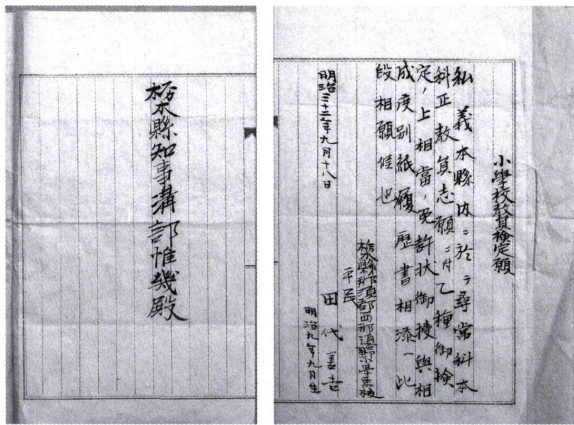 小學校教員檢定願
私義本縣内ニ於テ尋常科本
科正教員志願ニ付乙種御檢
定ノ上相當ノ免許状御授與相
成度別紙履歴書相添ヘ此
段相願候也
明治三十二年九月十八日
栃木縣那須郡西那須
平民
田代善吉
明治九年九月生
栃木縣知事溝部惟幾殿